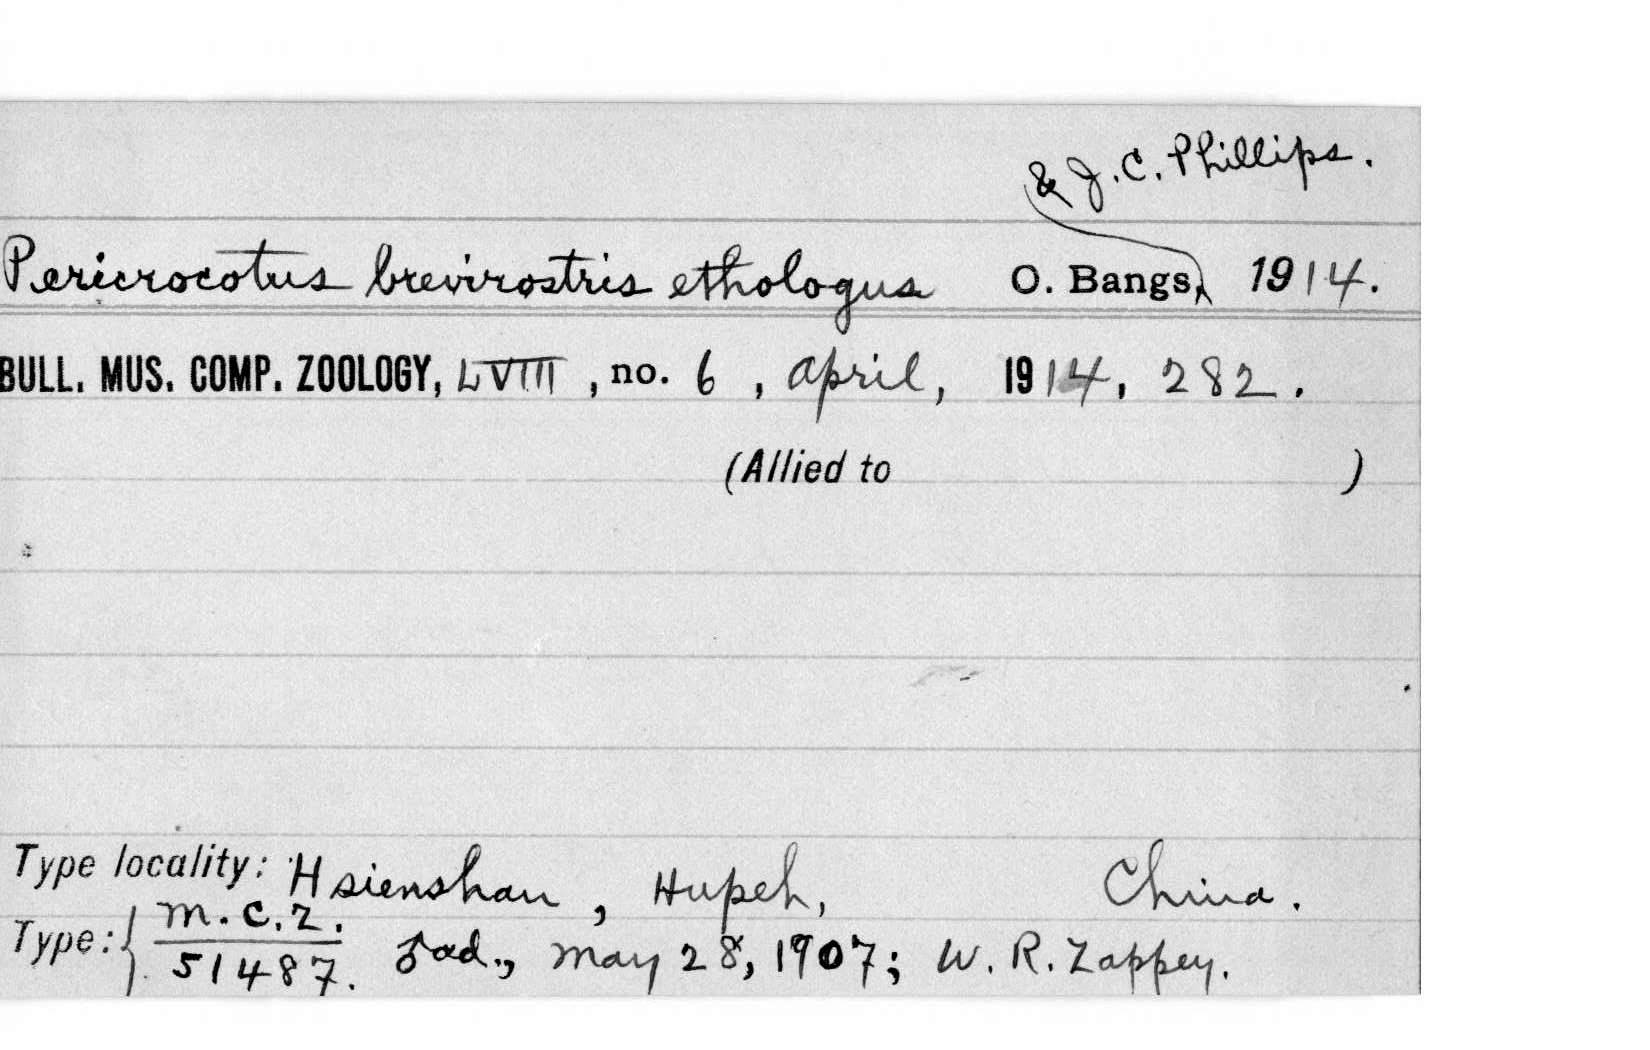 & J. C. Phillips.
Pericrocotus brevirostris ethologus O. Bangs, 1914.
BULL. MUS. COMP. ZOOLOGY, LVIII, no. 6, April, 1914, 282.
(Allied to )
Type locality: Hsienshan, Hupeh, China.
Type: { M.C.Z. 51487. ♂ ad., May 28, 1907; W. R. Zappey.